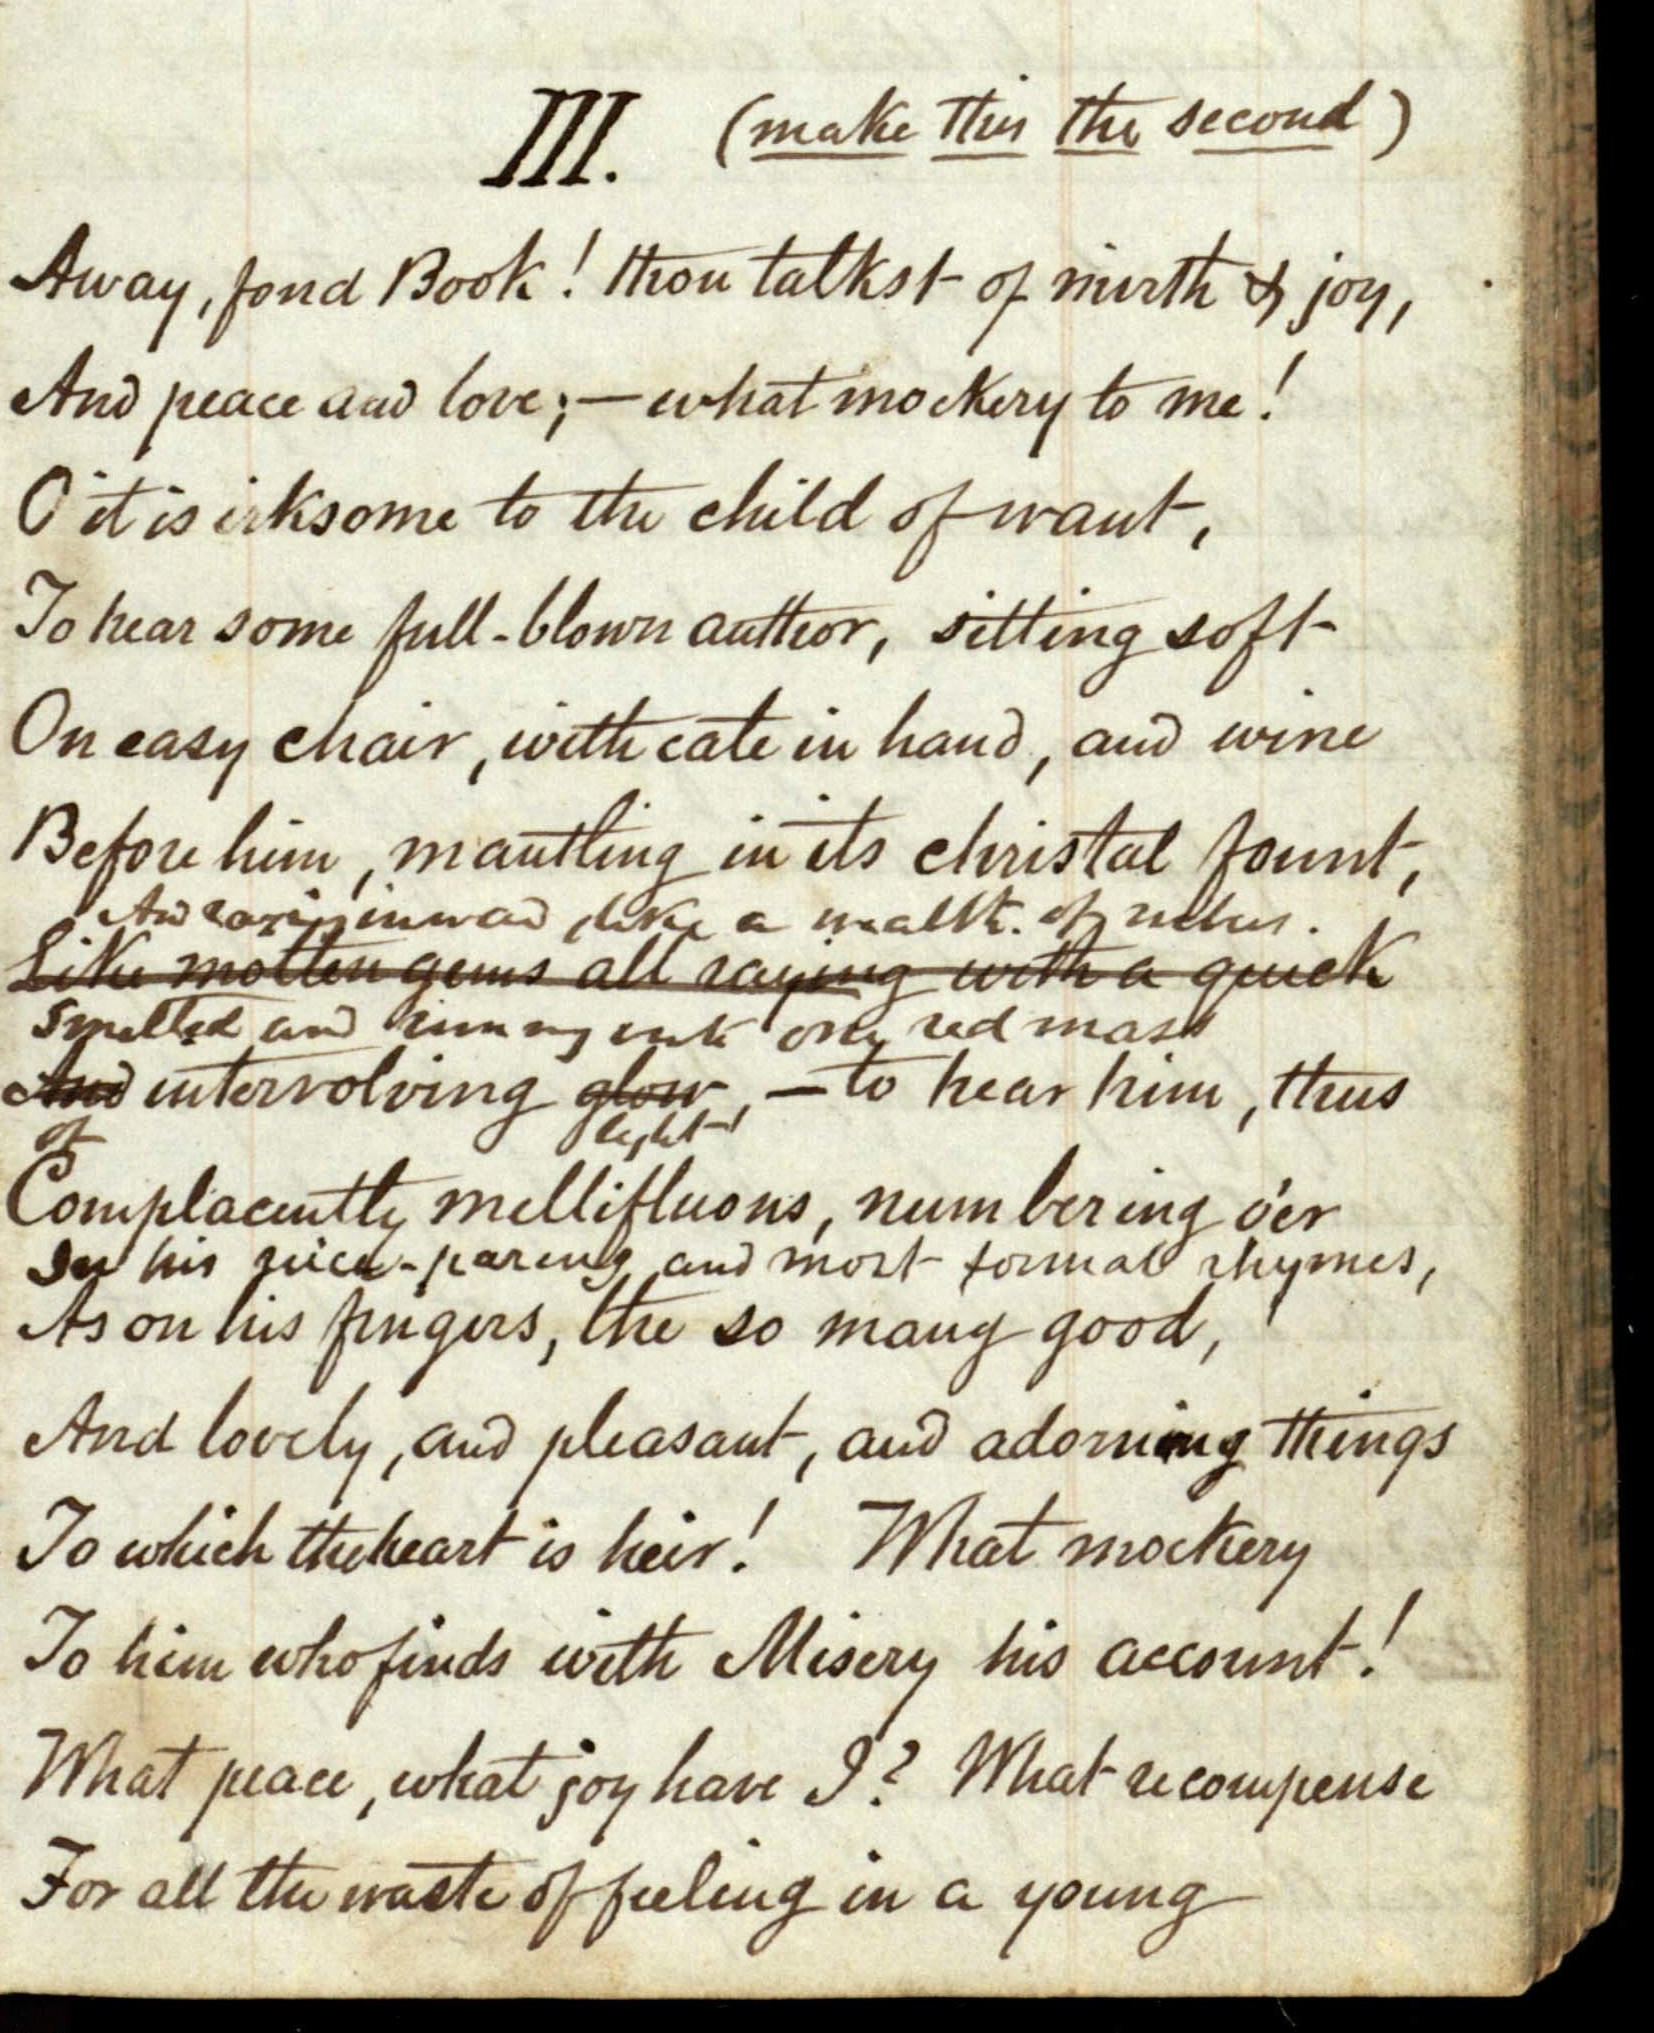 III. (make this the second)
Away, fond Book! thou talkst of mirth & joy,
And peace and love; — what mockery to me!
O it is irksome to the child of want,
To hear some full-blown author, sitting soft
On easy chair, with cate in hand, and wine
Before him, mantling in its christal fount,
And raying inward, like a wealth of rubies.
Like molten gems all raying with a quick
Smelted and running into one red mass
And intervolving glow, — to hear him, thus
of light
Complacently mellifluous, numbering o'er
In his nice-paring and most formal rhymes,
As on his fingers, the so many good,
And lovely, and pleasant, and adorning things
To which the heart is heir! What mockery
To him who finds with Misery his account!
What peace, what joy have I? What recompense
For all the waste of feeling in a young